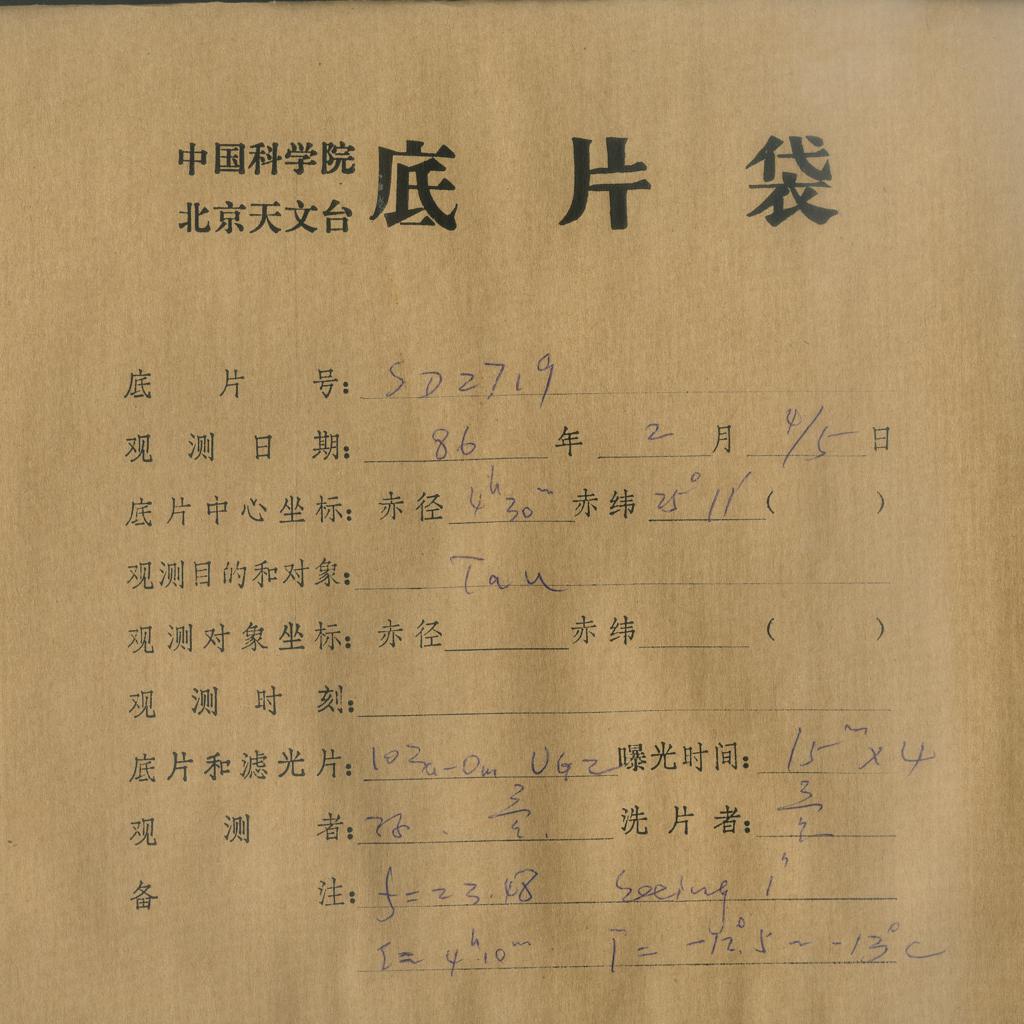 中国科学院
北京天文台
底片袋
底片号: SD2719
观测日期: 86 年 2 月 4/5 日
底片中心坐标: 赤径 4ʰ30ᵐ 赤纬 25°11′ ( )
观测目的和对象: Tau
观测对象坐标: 赤径 赤纬 ( )
观测时刻:
底片和滤光片: 103a-Om UG2 曝光时间: 15ᵐ×4
观测者: 洗片者:
备注: f=23.48 Seeing 1″
4ʰ10ᵐ T= -12°.5 ~ -13°C